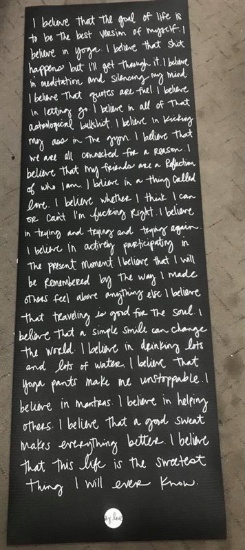 I believe that the goal of life is
to be the best version of myself. I
believe in yoga. I believe that shit
happens but I'll get through it. I believe
in meditation and silencing my mind.
I believe that quotes are fuel I believe
in letting go I believe in all of that
astrological bullshit I believe in kicking
my ass in the gym I believe that
we are all connected for a reason. I
believe that my friends are a reflection
of who I am. I believe in a thing called
love. I believe whether I think I can
or can't I'm fucking right. I believe
in trying and trying and trying again.
I believe in actively participating in
the present moment I believe that I will
be remembered by the way I made
others feel above anything else I believe
that traveling is good for the soul I
believe that a simple smile can change
the world I believe in drinking lots
and lots of water. I believe that
yoga pants make me unstoppable. I
believe in mantras. I believe in helping
others. I believe that a good sweat
makes everything better. I believe
that this life is the sweetest
thing I will ever know.